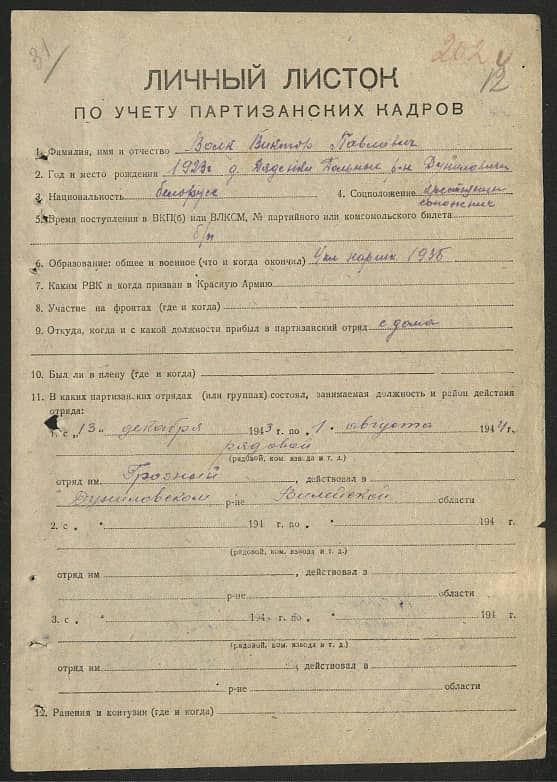 31/
202
12
ЛИЧНЫЙ ЛИСТОК
ПО УЧЕТУ ПАРТИЗАНСКИХ КАДРОВ
1. Фамилия, имя и отчество Волк Виктор Павлович
2. Год и место рождения 1923г д. Дяденки Польные р-н Дуниловичи
3. Национальность белорусс 4. Соцположение крестьянин
5. Время поступления в ВКП(б) или ВЛКСМ, № партийного или комсомольского билета
б/п
6. Образование: общее и военное (что и когда окончил) 4 кл 1936
7. Каким РВК и когда призван в Красную Армию
8. Участие на фронтах (где и когда)
9. Откуда, когда и с какой должности прибыл в партизанский отряд с дома
10. Был ли в плену (где и когда)
11. В каких партизан.ких отрядах (или группах) состоял, занимаемая должность и район действия
отряда:
1. с „13„ декабря 1943 г. по „1. августа 1944 г.
рядовой
(рядовой, ком. взвода и т. д.)
отряд им Грозный, действовал в
Дуниловском р-не Вилейской области
2. с „ „ 194 г. по „ „ 194 г.
(рядовой, ком. взвода и т. д.)
отряд им , действовал в
р-не области
3. с „ „ 194 г. по „ „ 194 г.
(рядовой, ком. взвода и т. д.)
отряд им , действовал в
р-не области
12. Ранения и контузии (где и когда)